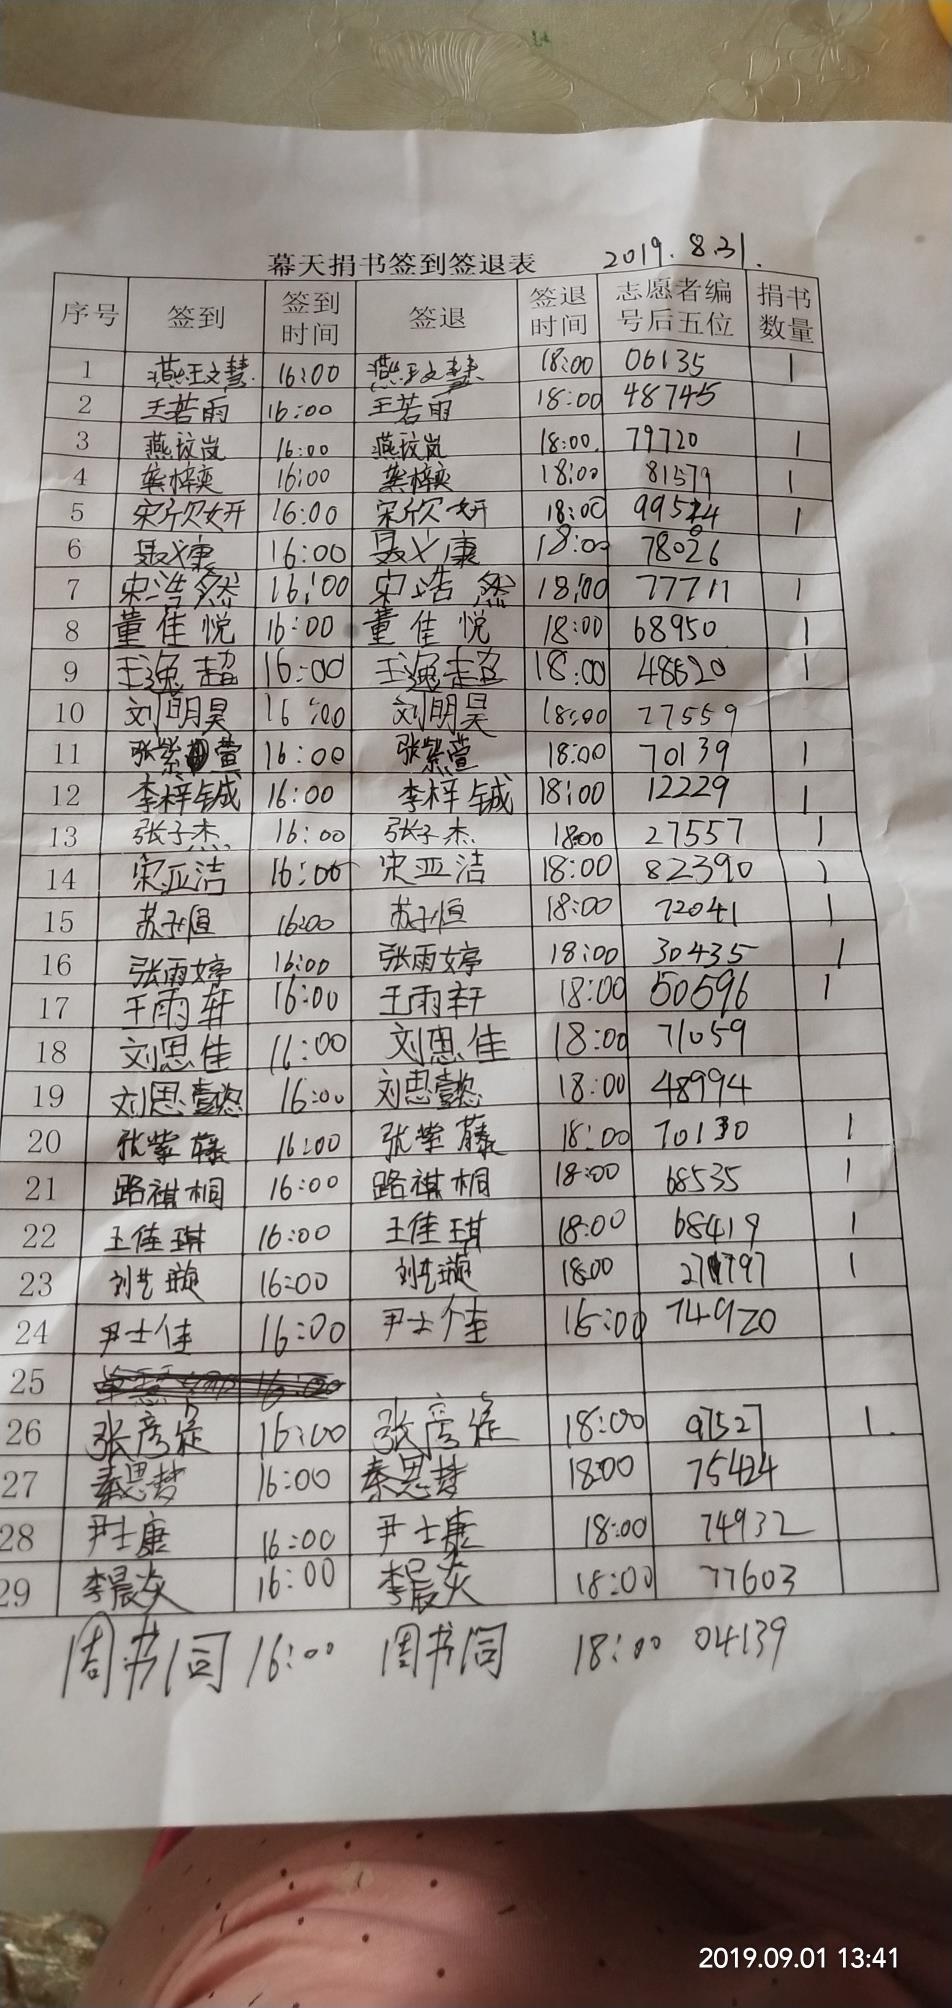 幕天捐书签到签退表 2019.8.31.
序号 签到 签到时间 签退 签退时间 志愿者编号后五位 捐书数量
1 燕王文慧 16:00 燕王文慧 18:00 06135 1
2 王若雨 16:00 王若雨 18:00 48745
3 燕玟岚 16:00 燕玟岚 18:00. 79720 1
4 16:00 18:00 81579 1
5 宋欣妍 16:00 宋欣妍 18:00 1
6 聂义康 16:00 聂义康 18:00 78026
7 宋浩然 16:00 宋浩然 18:00 77711 1
8 董佳悦 16:00 董佳悦 18:00 68950 1
9 王逸超 16:00 王逸超 18:00 1
10 刘明昊 16:00 刘明昊 18:00 77559
11 张紫萱 16:00 张紫萱 18:00 70139 1
12 李梓铖 16:00 李梓铖 18:00 12229 1
13 张子杰 16:00 张子杰 18:00 27557 1
14 宋亚洁 16:00 宋亚洁 18:00 82390 1
15 苏子恒 16:00 苏子恒 18:00 72041 1
16 张雨婷 16:00 张雨婷 18:00 30435 1
17 王雨轩 16:00 王雨轩 18:00 50596 1
18 刘思佳 16:00 刘思佳 18:00 71059
19 刘思懿 16:00 刘思懿 18:00 48994
20 张紫藤 16:00 张紫藤 18:00 70130 1
21 路祺桐 16:00 路祺桐 18:00 68535 1
22 王佳琪 16:00 王佳琪 18:00 68419 1
23 刘艺璇 16:00 刘艺璇 18:00 1
24 尹士佳 16:00 尹士佳 18:00 74920
25
26 16:00 18:00 97527 1.
27 秦思梦 16:00 秦思梦 18:00 75424
28 尹士康 16:00 尹士康 18:00 74932
29 李晨炎 16:00 李晨炎 18:00 77603
周书同 16:00 周书同 18:00 04139
2019.09.01 13:41